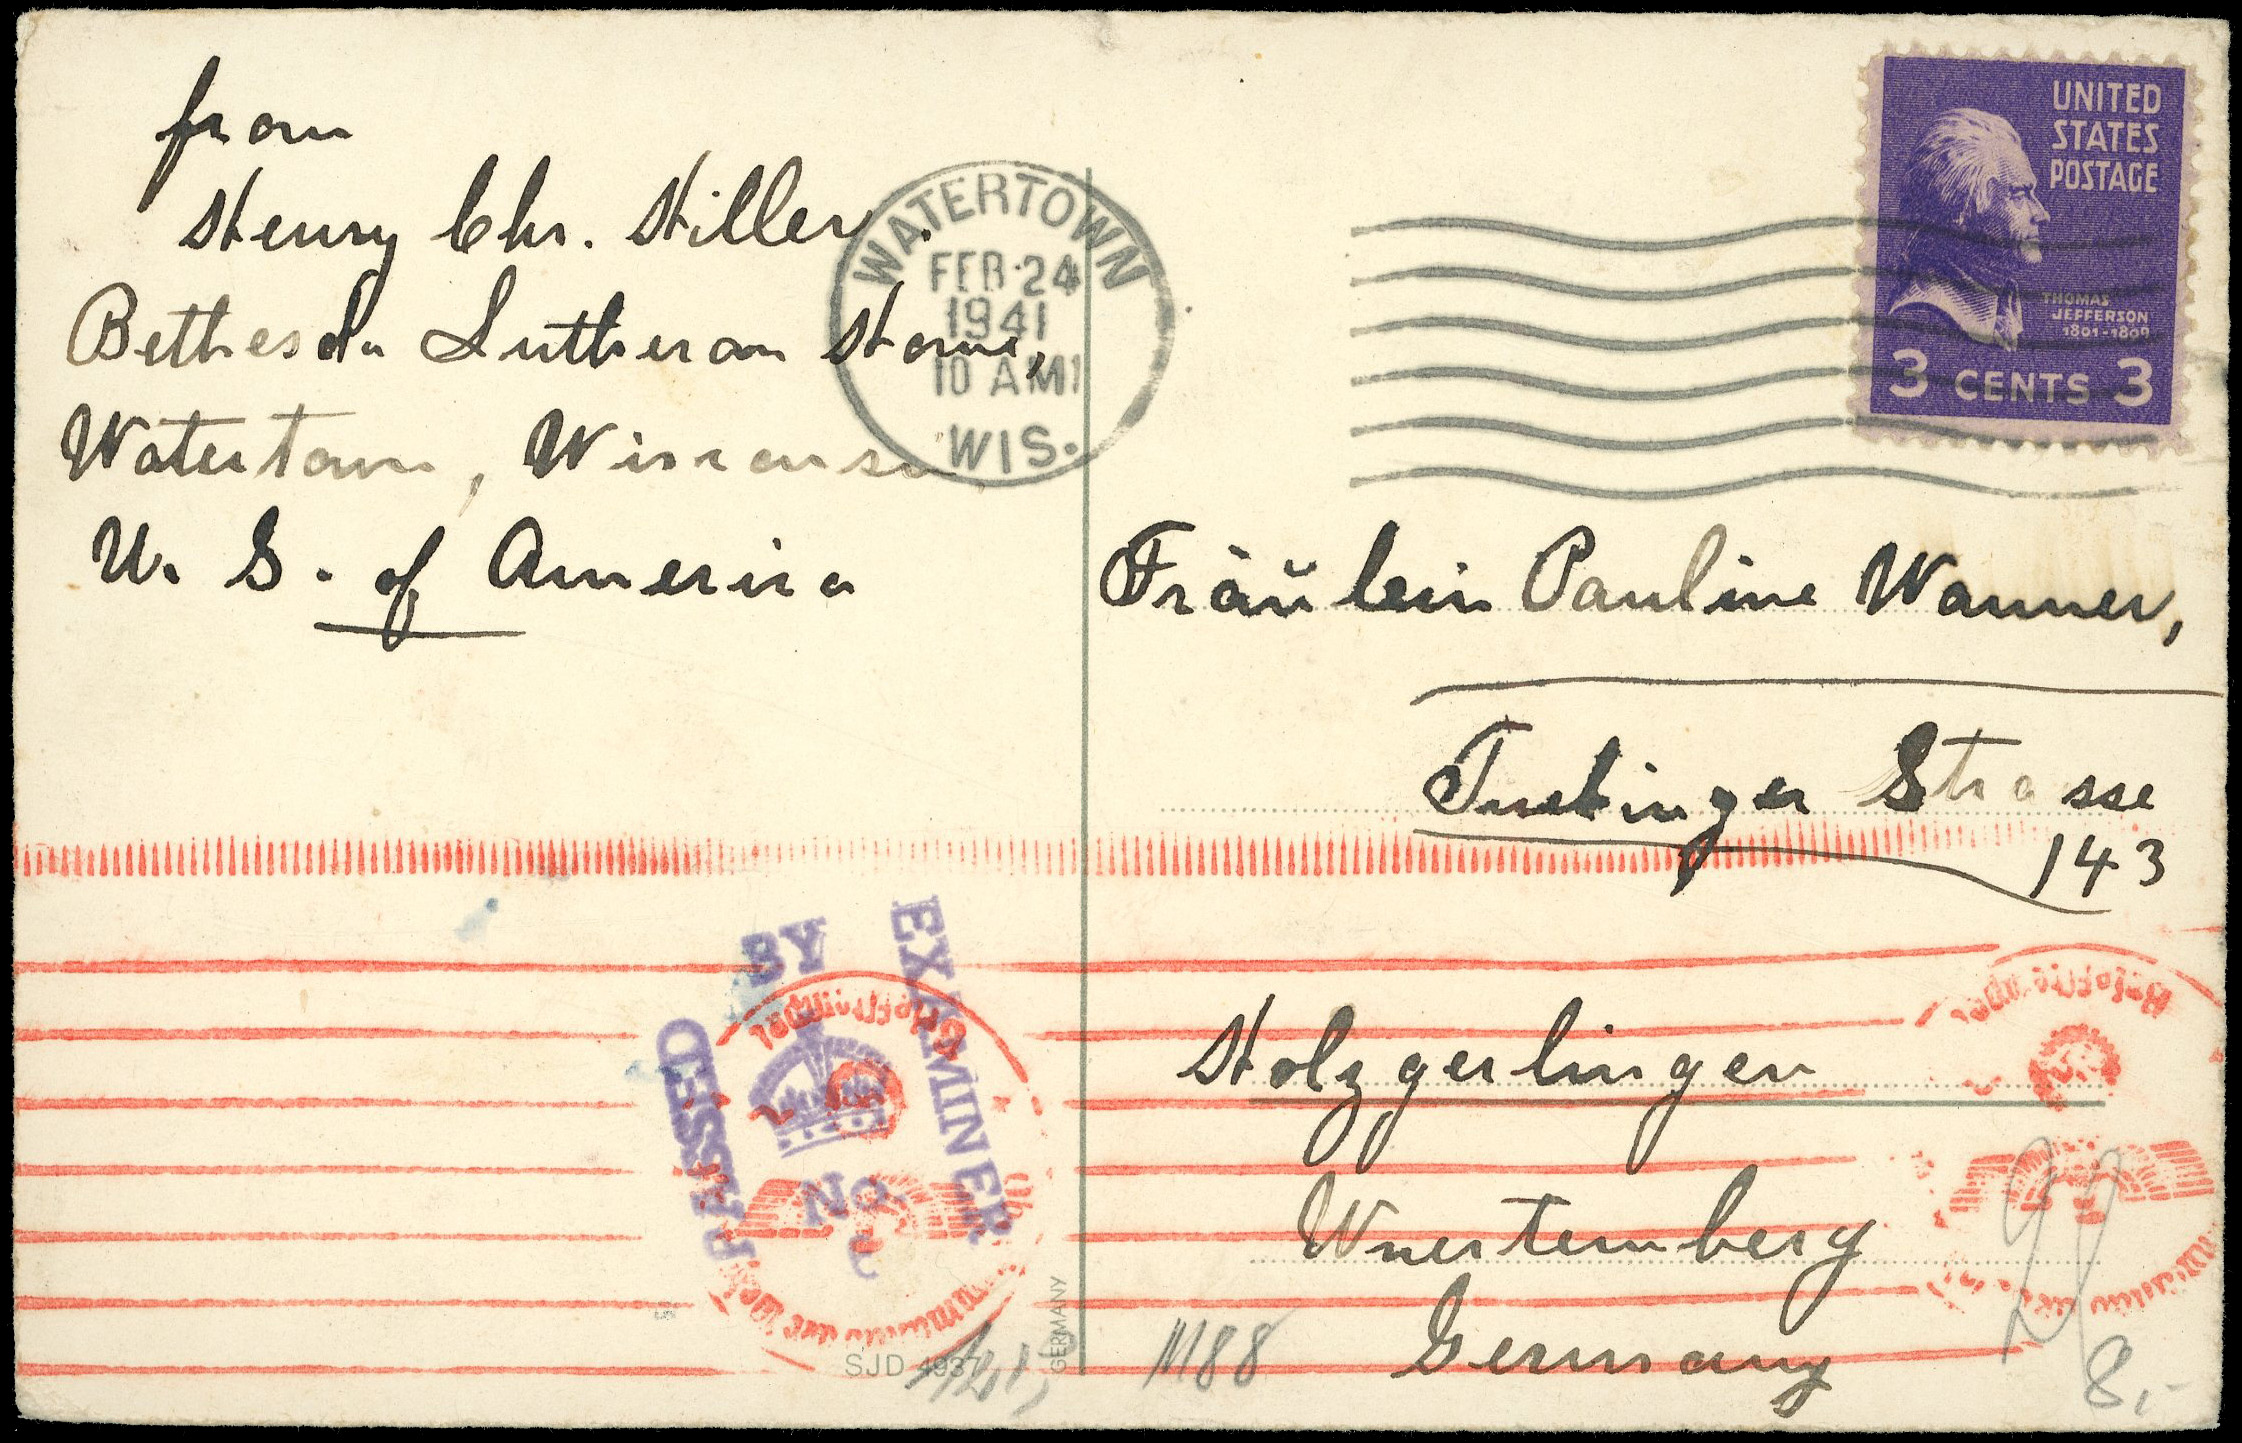 from
Henry Chr. Hiller.
Bethesda Lutheran Home,
Watertown, Wisconsin
U. S. of America
WATERTOWN
FEB 24
1941
10 AM
WIS.
UNITED
STATES
POSTAGE
THOMAS
JEFFERSON
1801-1809
3 CENTS 3
Fräulein Pauline Wanner,
Strasse
143
Holzgerlingen
Wuertemberg
Germany
PASSED BY EXAMINER
No
SJD 4937
GERMANY
1188
8,-